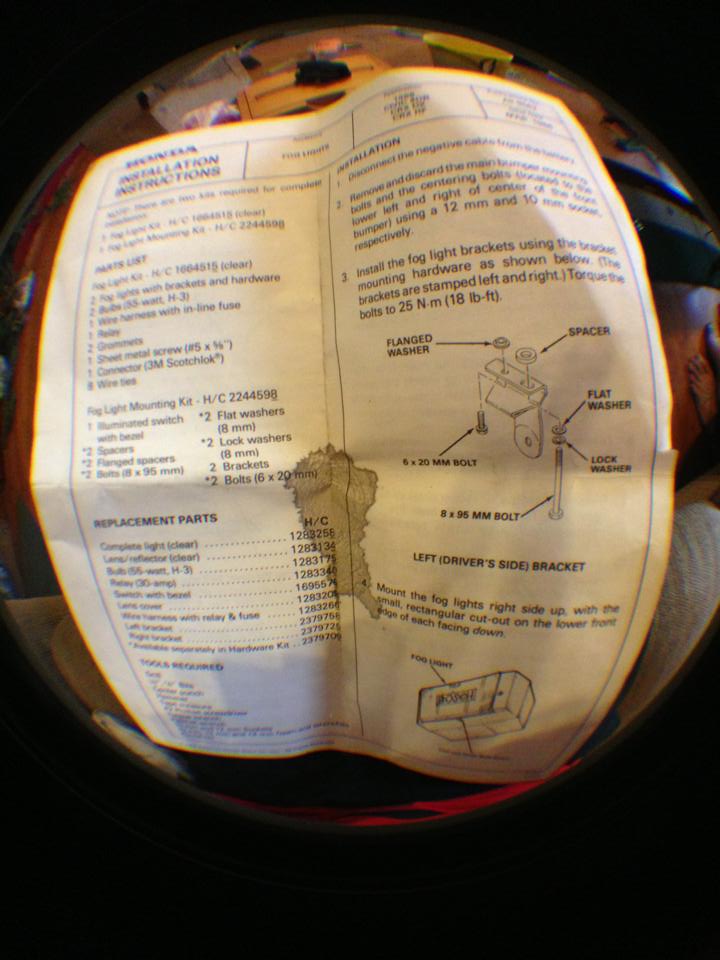 HONDA
INSTALLATION
INSTRUCTIONS
FOG LIGHTS
NOTE: There are two kits required for complete
installation:
1 Fog Light Kit - H/C 1664515 (clear)
1 Fog Light Mounting Kit - H/C 2244598
PARTS LIST
Fog Light Kit - H/C 1664515 (clear)
2 Fog lights with brackets and hardware
2 Bulbs (55-watt, H-3)
1 Wire harness with in-line fuse
1 Relay
2 Grommets
1 Sheet metal screw (#5 x ⅝")
1 Connector (3M Scotchlok®)
8 Wire ties
Fog Light Mounting Kit - H/C 2244598
1 Illuminated switch
with bezel
*2 Spacers
*2 Flanged spacers
*2 Bolts (8 x 95 mm)
*2 Flat washers
(8 mm)
*2 Lock washers
(8 mm)
2 Brackets
*2 Bolts (6 x 20 mm)
REPLACEMENT PARTS
H/C
Complete light (clear) 1283256
Lens/reflector (clear) 1283134
Bulb (55-watt, H-3) 1283175
Relay (30-amp) 128334
Switch with bezel 169557
Lens cover 128320
Wire harness with relay & fuse 1283266
Left bracket 2379758
Right bracket 2379725
*Available separately in Hardware Kit 2379709
TOOLS REQUIRED
Drill
Center punch
Tape measure
INSTALLATION
1. Disconnect the negative cable from the battery.
2. Remove and discard the main bumper mounting
bolts and the centering bolts (located to the
lower left and right of center of the front
bumper) using a 12 mm and 10 mm socket,
respectively.
3. Install the fog light brackets using the bracket
mounting hardware as shown below. (The
brackets are stamped left and right.) Torque the
bolts to 25 N·m (18 lb-ft).
FLANGED
WASHER
SPACER
FLAT
WASHER
6 x 20 MM BOLT
LOCK
WASHER
8 x 95 MM BOLT
LEFT (DRIVER'S SIDE) BRACKET
4. Mount the fog lights right side up, with the
small, rectangular cut-out on the lower front
edge of each facing down.
FOG LIGHT